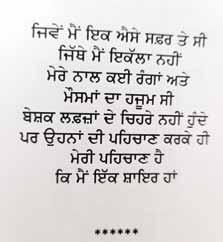 ਜਿਵੇਂ ਮੈਂ ਇਕ ਐਸੇ ਸਫ਼ਰ ਤੇ ਸੀ
ਜਿੱਥੇ ਮੈਂ ਇਕੱਲਾ ਨਹੀਂ
ਮੇਰੇ ਨਾਲ ਕਈ ਰੰਗਾਂ ਅਤੇ
ਮੌਸਮਾਂ ਦਾ ਹਜੂਮ ਸੀ
ਬੇਸ਼ਕ ਲਫ਼ਜ਼ਾਂ ਦੇ ਚਿਹਰੇ ਨਹੀਂ ਹੁੰਦੇ
ਪਰ ਉਹਨਾਂ ਦੀ ਪਹਿਚਾਣ ਕਰਕੇ ਹੀ
ਮੇਰੀ ਪਹਿਚਾਣ ਹੈ
ਕਿ ਮੈਂ ਇੱਕ ਸ਼ਾਇਰ ਹਾਂ
******